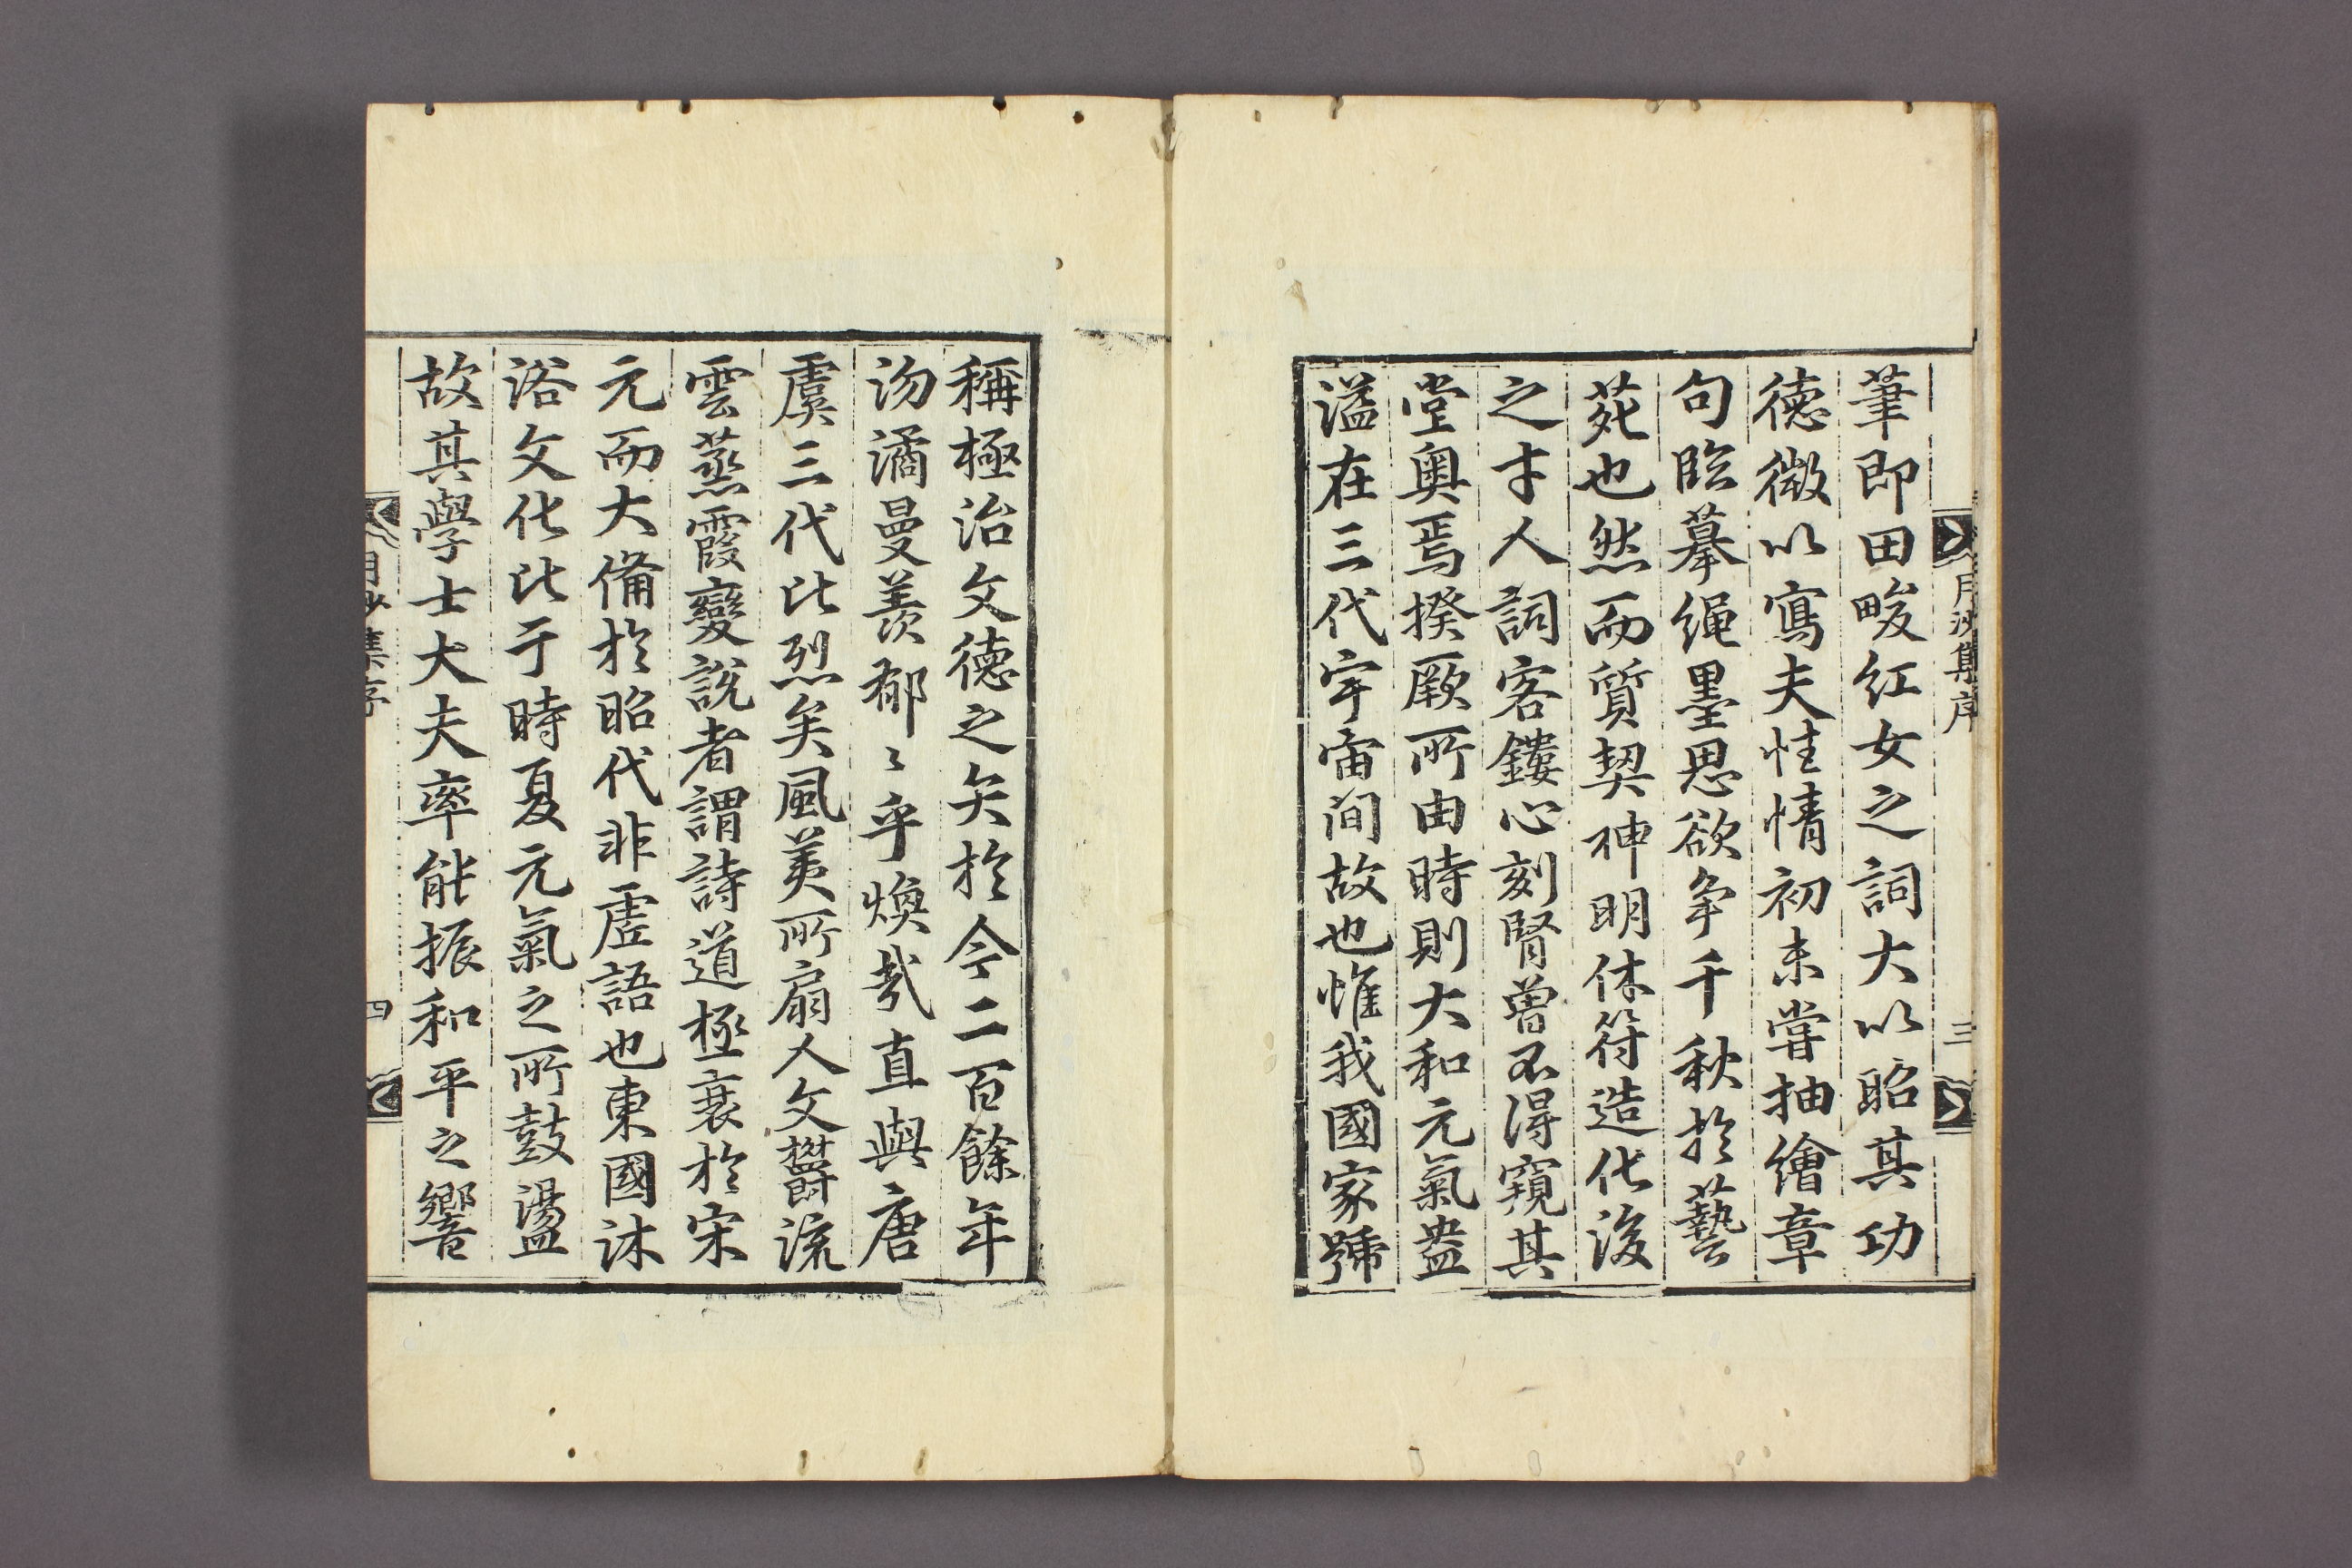 月沙集序
三
筆即田畯紅女之詞大以昭其功
德微以寫夫性情初未嘗抽繪章
句臨摹繩墨思欲争千秋於藝
苑也然而質契神明休符造化後
之才人詞客鏤心刻腎曽不淂窺其
堂奥焉揆厥所由時則大和元氣盎
溢在三代宇宙间故也惟我國家號
稱極治文德之矣於今二百餘年
沕潏曼羨郁〻乎煥㢤直與唐
虞三代比烈矣風美所扇人文欝流
雲蒸霞變說者謂詩道極衰於宋
元而大備於昭代非虛語也東國沐
浴文化比于時夏元氣之所鼓盪
故其學士大夫率能振和平之響
月沙集序
四